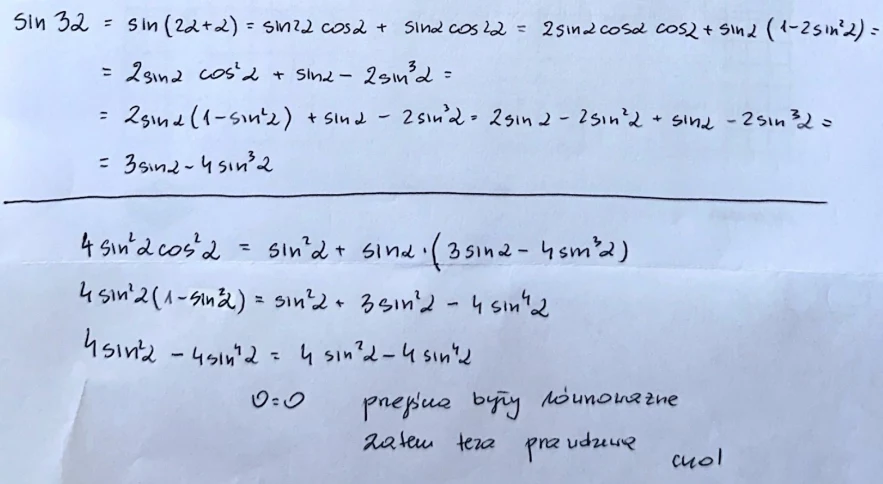 sin 3α = sin(2α+α) = sin2α cosα + sinα cos2α = 2sinα cosα cosα + sinα (1-2sin²α) =
= 2sinα cos²α + sinα - 2sin³α =
= 2sinα (1-sin²α) + sinα - 2sin³α = 2sinα - 2sin²α + sinα - 2sin³α =
= 3sinα - 4sin³α
4sin²α cos²α = sin²α + sinα·(3sinα - 4sin³α)
4sin²α(1-sin²α) = sin²α + 3sin²α - 4sin⁴α
4sin²α - 4sin⁴α = 4sin²α - 4sin⁴α
0=0 przejścia były równoważne
zatem teza prawdziwa
cnd